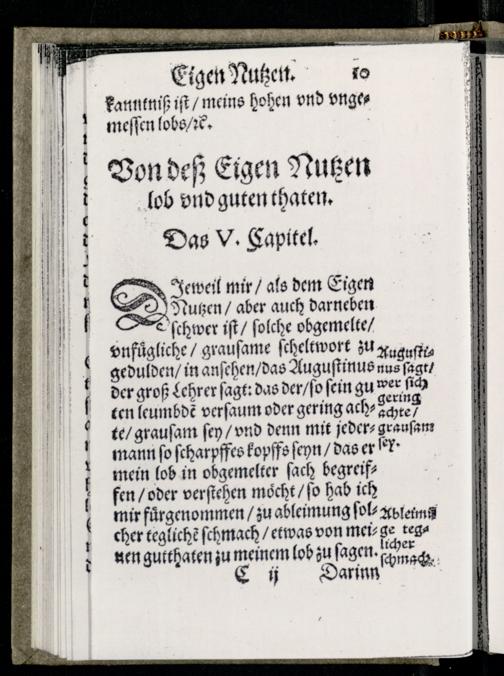 Eigen Nutzen. 10
kanntniß ist / meins hohen vnd vnge-
messen lobs/ꝛc.
Von deß Eigen Nutzen
lob vnd guten thaten.
Das V. Capitel.
DJeweil mir / als dem Eigen
Nutzen / aber auch darneben
schwer ist / solche obgemelte/
vnfügliche / grausame scheltwort zu
gedulden / in ansehen/das Augustinus
der groß Lehrer sagt: das der/so sein gu
ten leumbdē versaum oder gering ach-
te/ grausam sey / vnd denn mit jeder-
mann so scharpffes kopffs seyn / das er
mein lob in obgemelter sach begreif-
fen / oder verstehen möcht / so hab ich
mir fürgenommen / zu ableimung sol-
cher teglichē schmach / etwas von mei-
nen gutthaten zu meinem lob zu sagen.
Augusti-
nus sagt/
wer sich
gering
achte /
grausam
sey.
Ableimũ
ge teg-
licher
schmach.
C ij Darinn